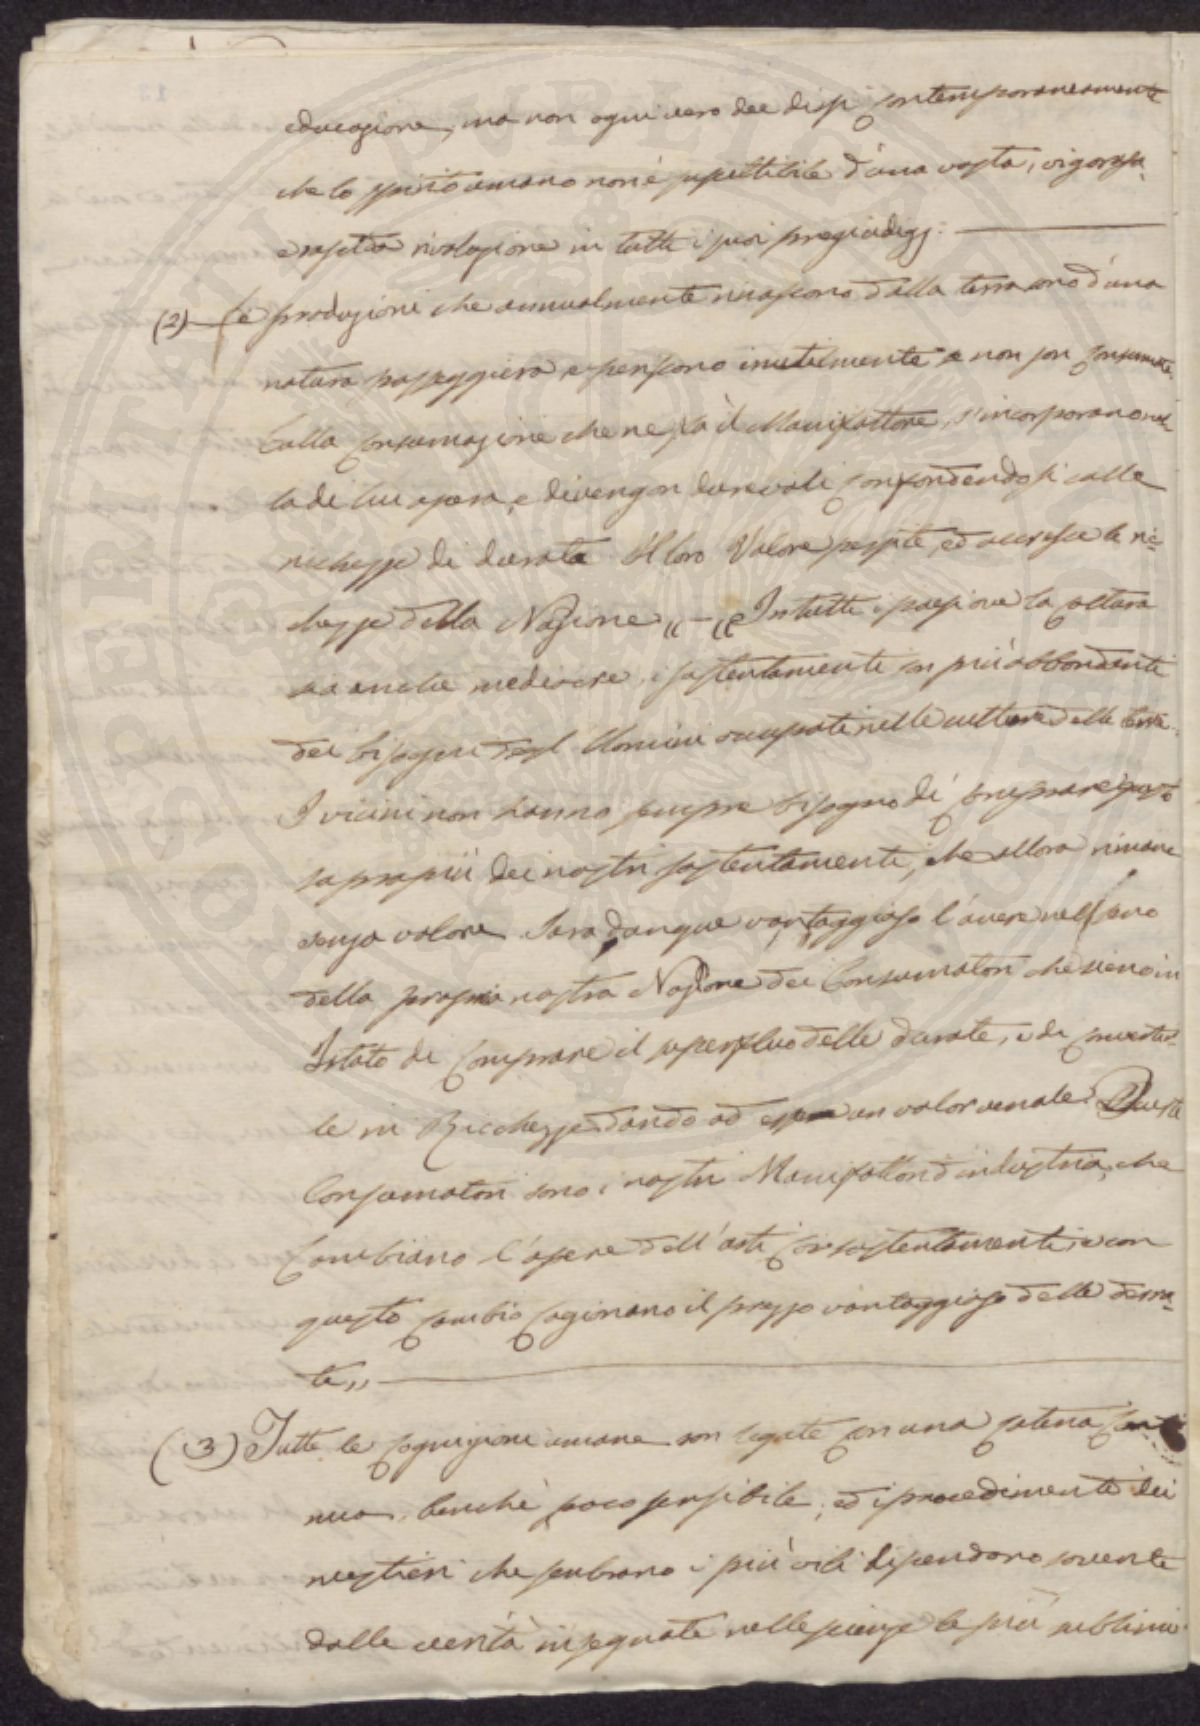 educazione, ma non ogni vero dee dirsi contemporaneamente
che lo spirito umano non è suscettibile d'una vasta, vigorosa,
e rapida rivoluzione in tutti i suoi pregiudizj.
(2) Le produzioni che annualmente rinascono dalla terra sono d'una
natura passeggiera e periscono inutilmente se non son consumate.
Colla consumazione che ne fà il Manifattore, s'incorporano nel-
la di lui opera, e divengon durevoli confondendosi colle
ricchezze di durata. Il loro Valore sussiste, ed accresce le ric-
chezze della Nazione „ — „ In tutti i paesi ove la coltura
sia anche mediocre, i sostentamenti son più abbondenti
dei bisogni degl'Uomini occupati nelle culture delle terre.
I vicini non hanno sempre bisogno di comprare questo
soprapiù dei nostri sostentamenti, che allora rimane
senza valore. Sarà dunque vantaggioso l'avere nel seno
della propria nostra Nazione dei Consumatori che sieno in
Istato di comprare il superfluo delle durate, e di convertir-
le in Ricchezze dando ad esse un valor venale. Questi
Consumatori sono i nostri Manifattori d'industria, che
Cambiano l'opere dell'arti con sostentamenti, e con
questo cambio cagionano il prezzo vantaggioso delle derra-
te „
(3) Tutte le cognizioni umane son legate con una catena conti
nua, benchè poco sensibile, ed i procedimenti dei
mestieri che sembrano i più vili dipendono sovente
dalle verità insegnate nelle scienze le più sublimi.